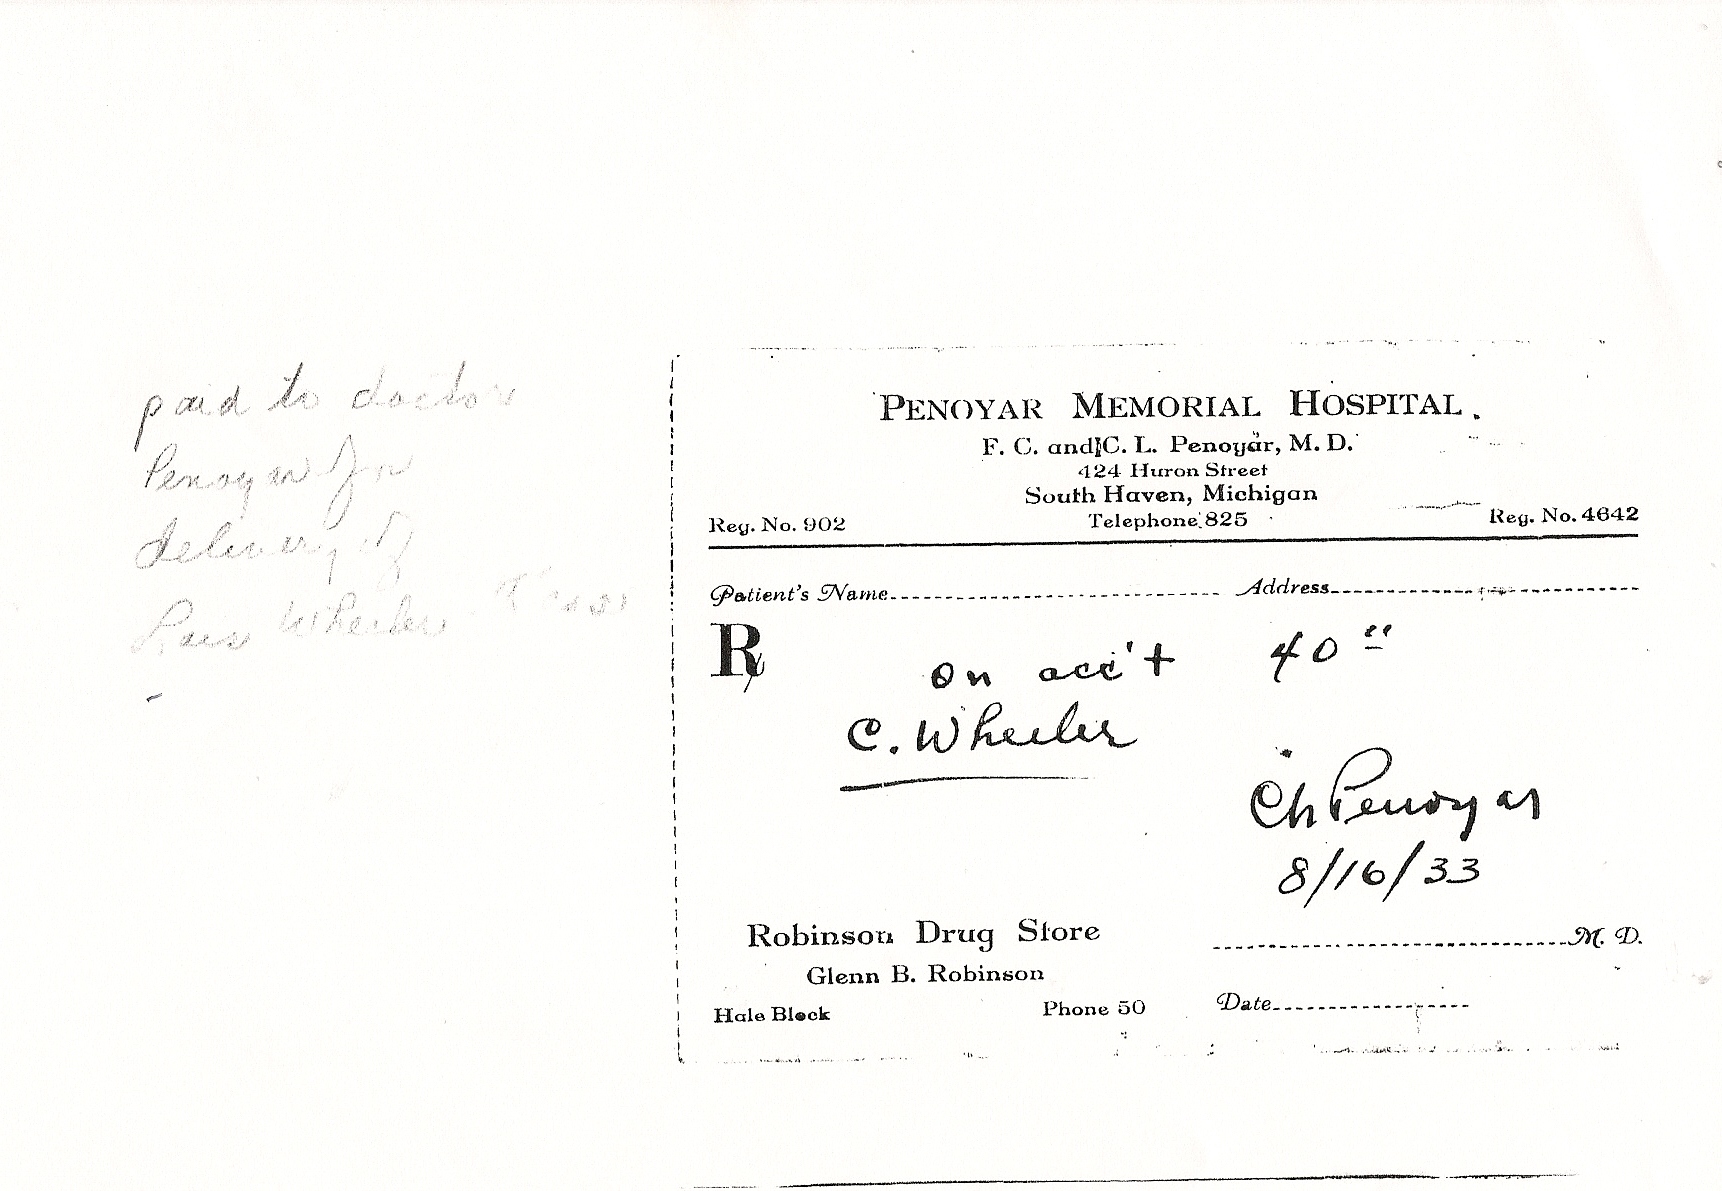 paid to doctor
Penoyar for
delivery of
Lois Wheeler
PENOYAR MEMORIAL HOSPITAL.
F. C. and C. L. Penoyar, M. D.
424 Huron Street
South Haven, Michigan
Reg. No. 902 Telephone 825 Reg. No. 4642
Patient's Name Address
Rx
on acc't 40 00
C. Wheeler
Penoyar
8/16/33
Robinson Drug Store
M. D.
Glenn B. Robinson
Hale Block Phone 50 Date